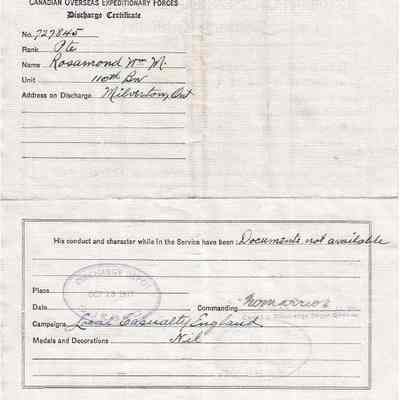 CANADIAN OVERSEAS EXPEDITIONARY FORCES
Discharge Certificate
No. 727845
Rank Pte
Name Rosamond Wm M.
Unit 110th Bn
Address on Discharge Milverton, Ont
His conduct and character while in the Service have been: Documents not available
Place
DISCHARGE DEPOT
OCT 23 1917
Date
Commanding
Campaigns Local Casualty England
Medals and Decorations Nil